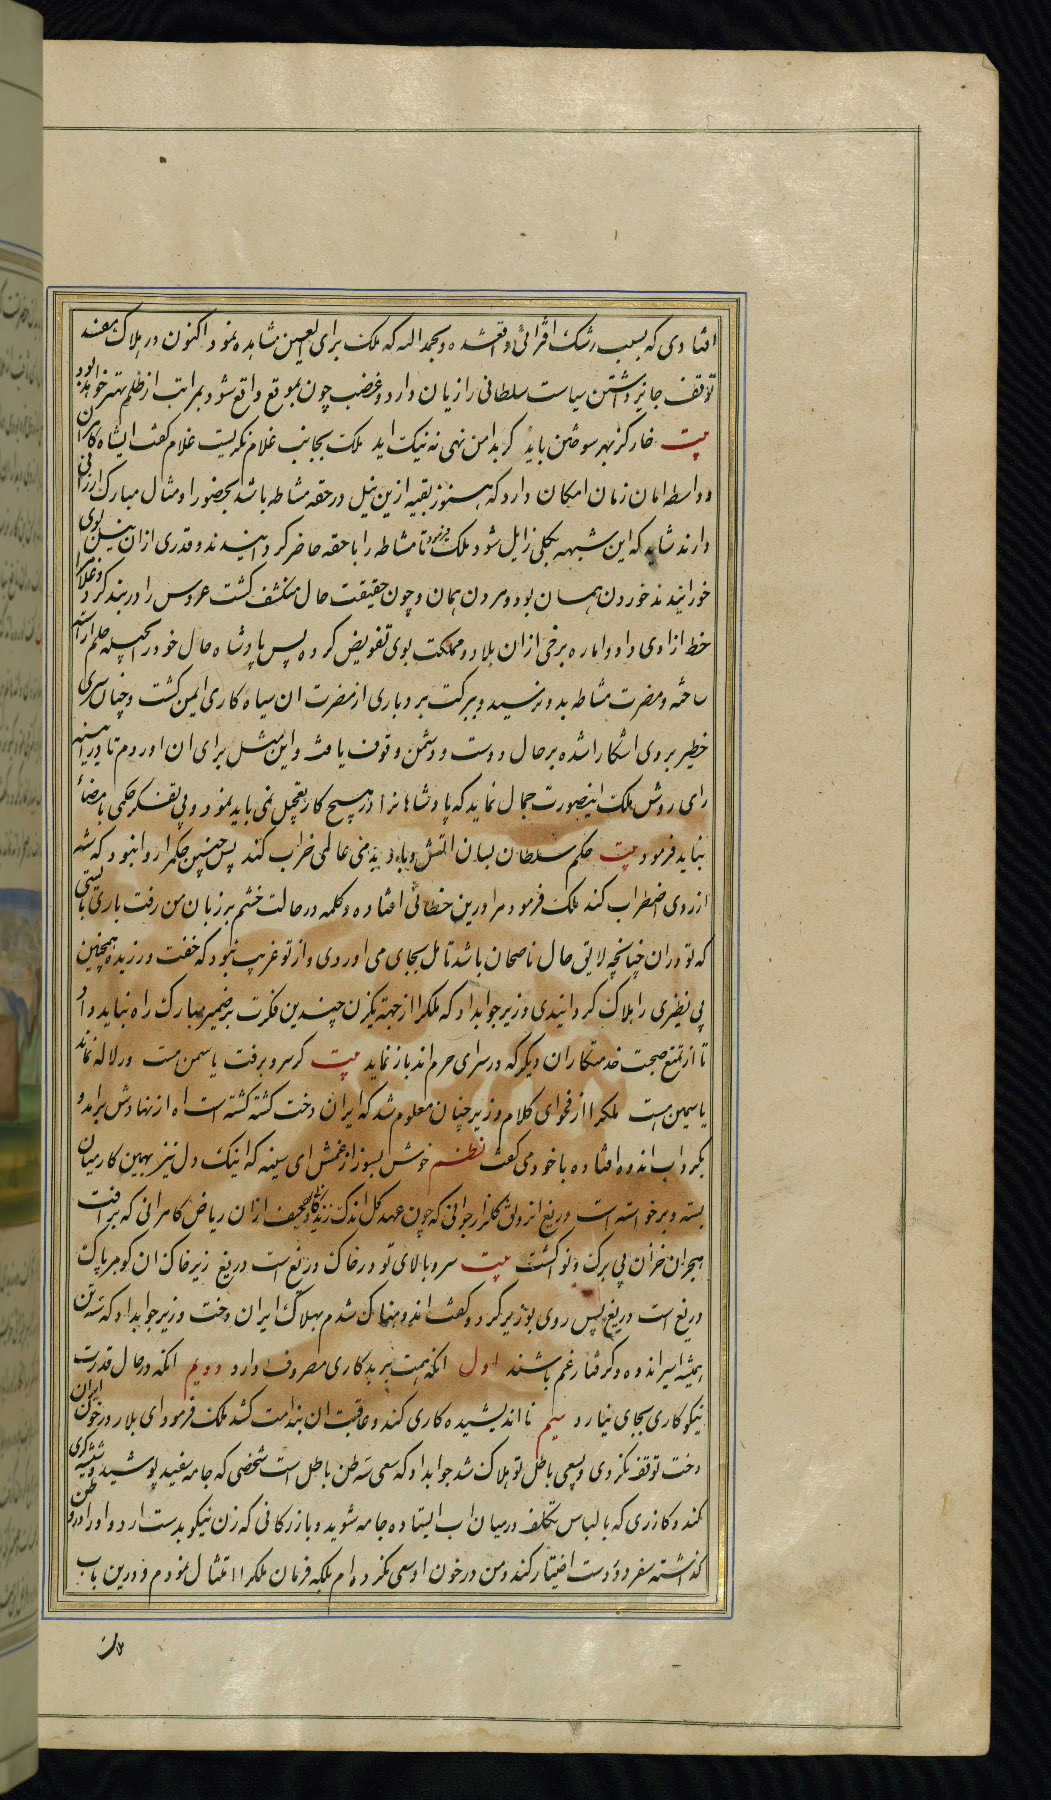 افتادی که بسبب رشک افترائی واقعشده و بحمد الله که ملک برای العین مشاهده نمود اکنون در هلاک مفسد
توقف جایز داشتن سیاست سلطانی را زیان دارد و غضب چون بموقع واقع شود بمراتب از حلم بهتر خواهد بود
بیت خار کز بهر سوختن باید گر بدامن نهی نه نیک آید ملک بجانب غلام نگریست غلام گفت ایشاه کامران
و واسطه امان زمان امکان دارد که هنوز بقیه ازین نیل در حقه مشاطه باشد بحضور او مثال مبارک ارزانی
دارند شاید که این شبهه بکلی زایل شود ملک فرمود تا مشاطه را با حقه حاضر کردانیدند و قدری ازان نیل بوی
خورانیدند خوردن همان بود و مردن همان و چون حقیقت حال منکشف کشت عروس را در بند کرد و غلام را
خط ازادی داد و اماره برخی ازان بلاد و مملکت بوی تفویض کرده پس پادشاه حال خود را بحیله حلم اراسته
ساخته و مضرت مشاطه بدو نرسید و ببرکت بردباری از مضرت ان سیاه کاری ایمن کشت و چنان سری
خطیر بروی اشکارا شده بر حال دوست و دشمن وقوف یافت و این مثل برای ان اوردم تا در ایینه
رای روشن ملک اینصورت جمال نماید که پادشاهانرا در هیچ کار تعجیل نمی باید نمود و بی تفکر حکمی بامضا
نباید فرمود بیت حکم سلطان بسان اتش و باد بدمی عالمی خراب کند پس چنین حکم را روا نبود که شه
از روی اضطراب کند ملک فرمود مرا درین خطائی افتاده و کلمه در حالت خشم بر زبان من رفت باری بایستی
که تو دران چنانچه لایق حال ناصحان باشد تامل بجای می اوردی و از تو غریب نبود که خفت ورزیده همچنین
بی نظیری را هلاک کردانیدی وزیر جوابداد که ملکرا از جهة یکزن چندین فکرت بر ضمیر مبارک راه نباید داد
تا از تمتع صحبت خدمتکاران دیکر که در سرای حرم اند باز نماید بیت کر سرو برفت یاسمن هست ور لاله نماند
یاسمین هست ملکرا از فحوای کلام وزیر چنان معلوم شد که ایران دخت کشته کشته است اه از نهادش برامد و
بکرداب اندوه افتاده با خود می کفت نظم خوش بسوز از غمش ای سینه که اینک دل نیز بهمین کار میان
بسته و برخواسته است دریغ از رونق کلزار جوانی که چون عهد کل اندک زندکانی و حیف ازان ریاض کامرانی که بر افت
هجران خزان بی برک و نوا کشت بیت سرو بالای تو در خاک دریغ است دریغ زیر خاک ان کوهر پاک
دریغ است دریغ پس روی بوزیر کرد و کفت اندوهناک شدم بهلاک ایران دخت وزیر جوابداد که سه تن
همیشه اسیر اندوه و کرفتار غم باشند اول انکه همت بر بدکاری مصروف دارد دویم انکه در حال قدرت
نیکوکاری بجای نیارد سیم نااندیشیده کاری کند و عاقبت ان بندامت کشد ملک فرمود ای بلار در خون ایران
دخت توقف نکردی و بسعی باطل تو هلاک شد جوابداد که سعی سه تن باطل است شخصی که جامه سفید پوشید و شیشه کری
کند و کازری که با لباس تکلف در میان اب ایستاده جامه شوید و بازرکانی که زن نیکو بدست ارد و او را در وطن
کذاشته سفر دور دست اختیار کند و من در خون او سعی نکرده ام بلکه فرمان ملکرا امتثال نمودم و درین باب